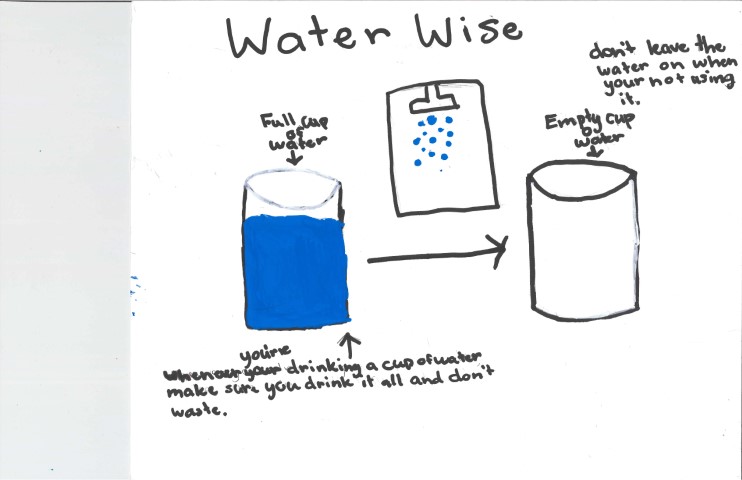 Water Wise
don't leave the
water on when
your not using
it.
Full cup
of
water
Empty cup
of
water
you're
Whenever your drinking a cup of water
make sure you drink it all and don't
waste.